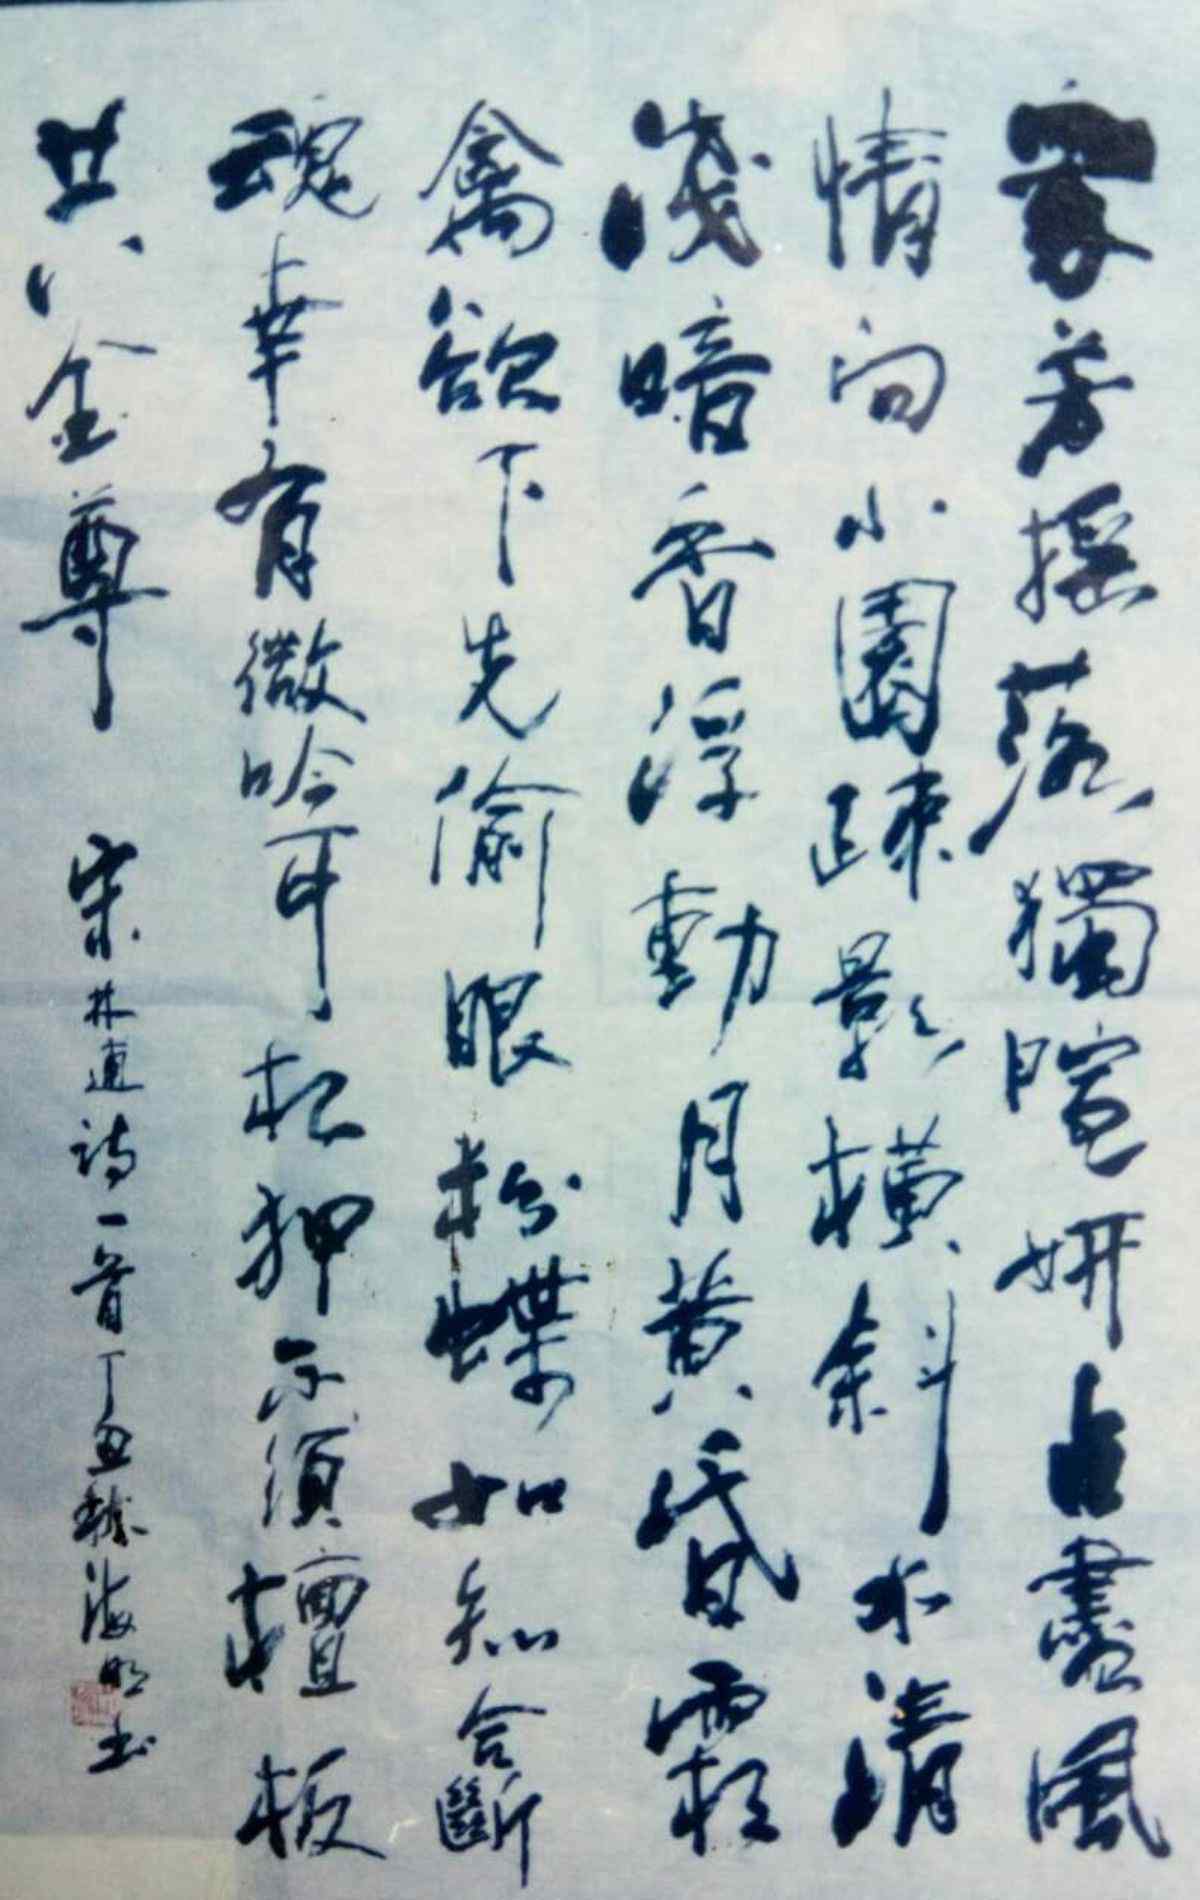 衆芳搖落獨暄妍占盡風
情向小園疎影橫斜水清
淺暗香浮動月黃昏霜
禽欲下先偷眼粉蝶如知合斷
魂幸有微吟可相狎不須檀板
共金尊
宋林逋詩一首丁丑秋海明书